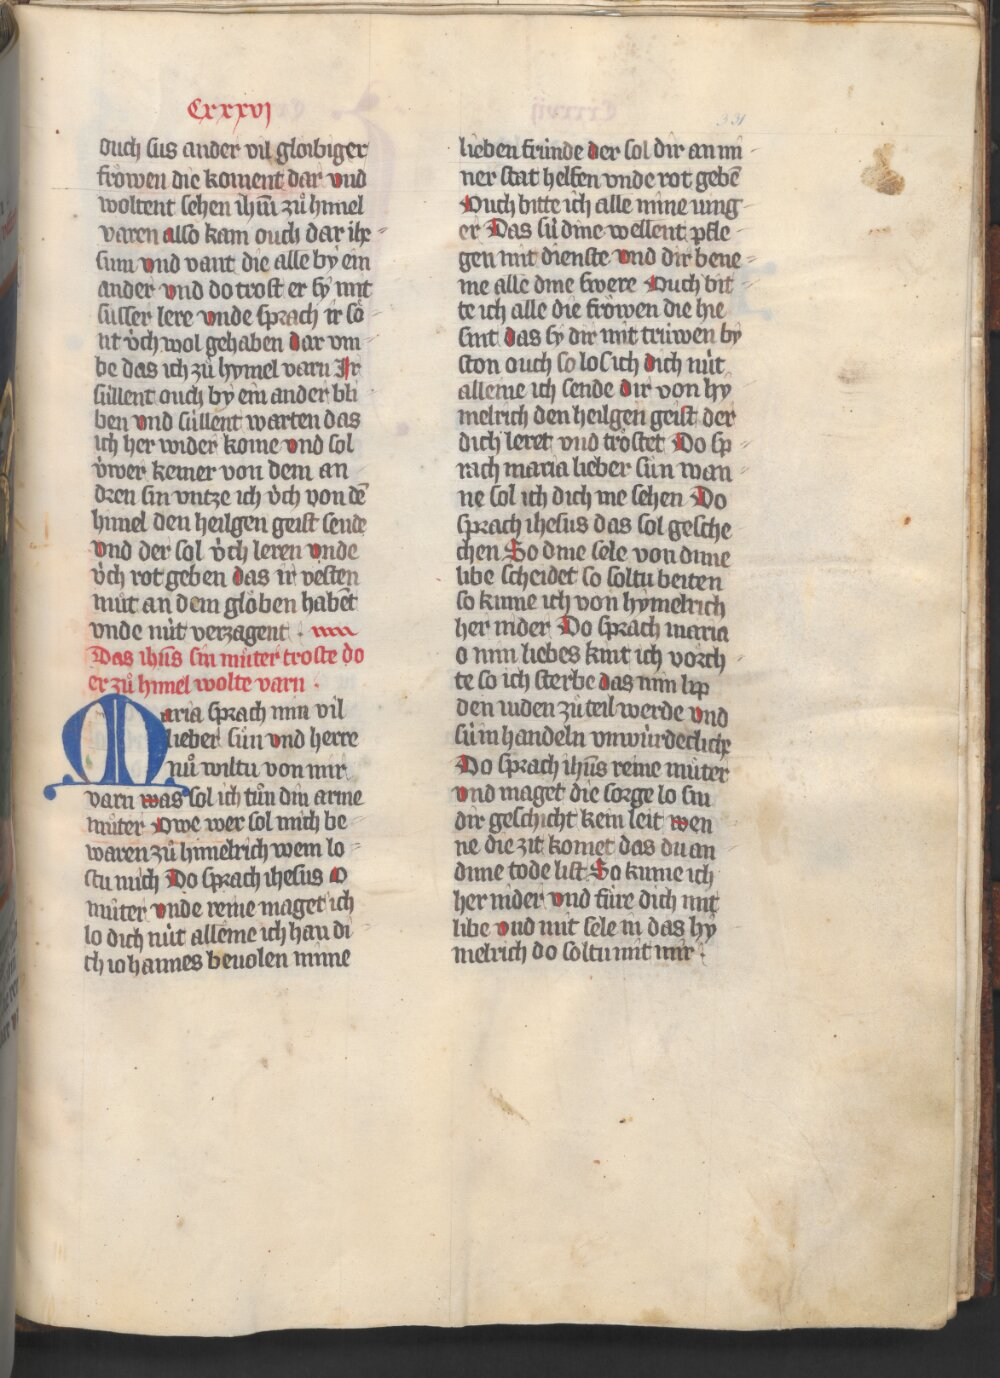 Cxxxvj
331
ouch sus ander vil gloͤibiger
froͤwen die koment dar vnd
woltent sehen ihm̄ zuͦ himel
varen also kam ouch dar ihe
sum vnd vant die alle by ein
ander vnd do trost er sy mit
suͤsser lere vnde sprach ir soͤ
nt v́ch wol gehaben dar vm
be das ich zuͦ hymel varn Ir
súllent ouch by ein ander bli
ben vnd súllent warten das
ich her wider kome vnd sol
v́wer keiner von dem an
dren sin vntze ich v́ch von dē
himel den heilgen geist sende
vnd der sol v́ch leren vnde
v́ch rot geben das ir vesten
muͦt an dem gloͤben habēt
vnde nút verzagent
Das ihūs sin muͦter troste do
er zuͦ himel wolte varn
Maria sprach min vil
lieber sun vnd herre
nuͦ wiltu von mir
varn was sol ich tuͦn din arme
muͦter Owe wer sol mich be
waren zuͦ himelrich wem lo
stu mich Do sprach ihesus O
muͦter vnde reine maget ich
lo dich nút alleine ich han di
ch iohannes beuolen mine
lieben frúnde der sol dir an mi
ner stat helfen vnde rot gebē
Ouch bitte ich alle mine iung
er Das sú dine wellent pfle
gen mit dienste vnd dir bene
me alle dine swere Ouch bit
te ich alle die froͤwen die hie
sint das sy dir mit trúwen by
ston ouch so los ich dich nút
alleine ich sende dir von hy
melrich den heilgen geist der
dich leret vnd troͤstet Do sp
rach maria lieber sun wan
ne sol ich dich me sehen Do
sprach ihesus das sol gesche
chen So dine sele von dinne
libe scheidet so soltu beiten
so kume ich von hymelrich
her nider Do sprach maria
o min liebes kint ich vorch
te so ich sterbe das min lip
den iuden zuͦ teil werde vnd
sú in handeln vnwúrdecliche
Do sprach ihūs reine muͦter
vnd maget die sorge lo sin
dir geschicht kein leit wen
ne die zit komet das du an
dinne tode list So kume ich
her nider vnd fuͤre dich mit
libe vnd mit sele in das hy
melrich do soltu mit mir